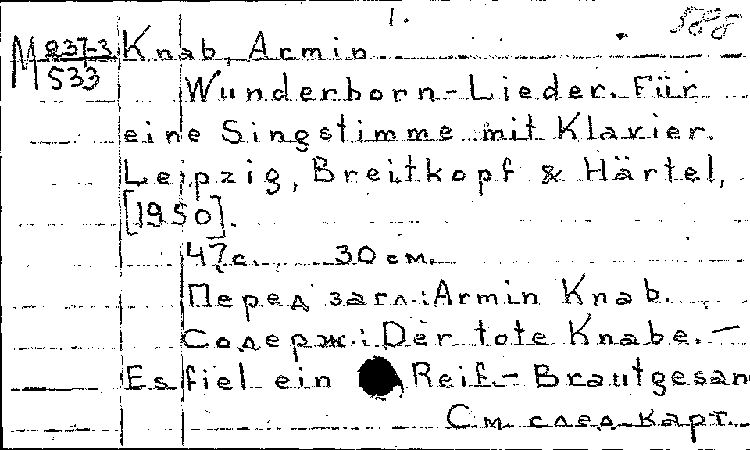 1. 588
М 237-3 Knab, Armin
533
Wunderborn-Lieder. Für
eine Singstimme mit Klavier.
Leipzig, Breitkopf & Härtel,
[1950].
47с. 30 см.
Перед загл.: Armin Knab.
Содерж.: Der tote Knabe. —
Es fiel ein Reif. - Brautgesan
См. след. карт.